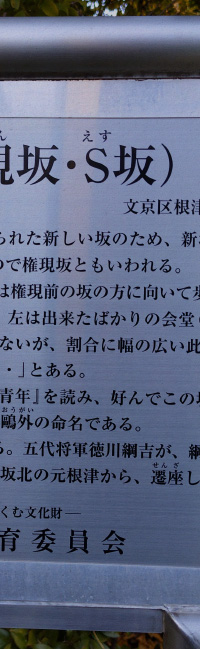 ん えす
現坂・S坂）
文京区根津
られた新しい坂のため、新
つで権現坂ともいわれる。
は権現前の坂の方に向いて歩
左は出来たばかりの会堂
ないが、割合に幅の広い此
・」とある。
青年』を読み、好んでこの
おうがい
鷗外の命名である。
る。五代将軍徳川綱吉が、綱
せんざ
坂北の元根津から、遷座し
くむ文化財―
育委員会